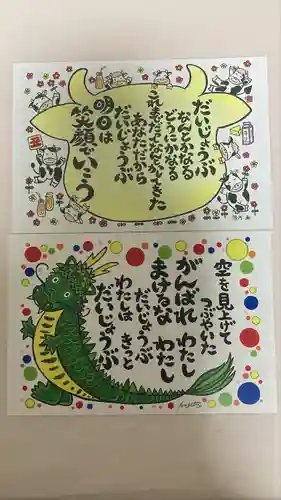 だいじょうぶ
なんとかなる
どうにかなる
これまでだってなんとかしてきた
あなただから
だいじょうぶ
明日は
笑顔でいこう
丑
空を見上げて
つぶやいた
がんばれ わたし
まけるな わたし
だいじょうぶ
わたしは きっと
だいじょうぶ